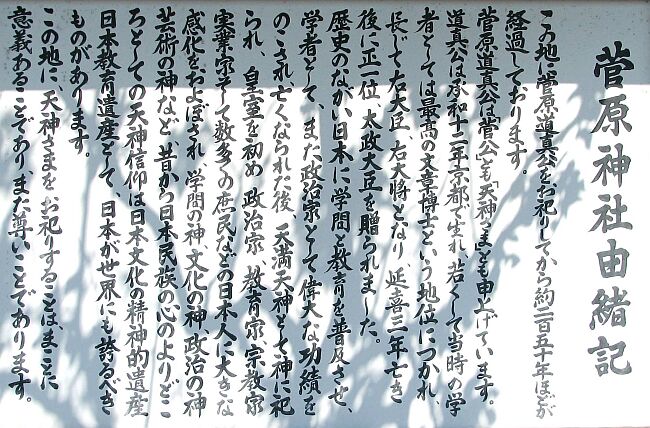 菅原神社由緒記
この地に菅原道真公をお祀りしてから約二百五十年ほどが
経過しております。
菅原道真公は「菅公」とも「天神さま」とも申上げています。
道真公は承和十二年京都で生れ、若くして当時の学
者としては最高の文章博士という地位につかれ、
長じて右大臣、右大将となり、延喜三年亡き
後に正一位、太政大臣を贈られました。
歴史のながい日本に学問と教育を普及させ、
学者として、また政治家として偉大な功績を
のこされ亡くなられた後、天満天神として神に祀
られ、皇室を初め政治家、教育家、宗教家
実業家そして数多くの庶民などの日本人に大きな
感化をおよぼされ学問の神、文化の神、政治の神
芸術の神など、昔から日本民族の心のよりどこ
ろとしての天神信仰は日本文化の精神的遺産
日本教育遺産として、日本が世界にも誇るべき
ものがあります。
この地に、天神さまをお祀りすることは、まことに
意義あることであり、また尊いことであります。